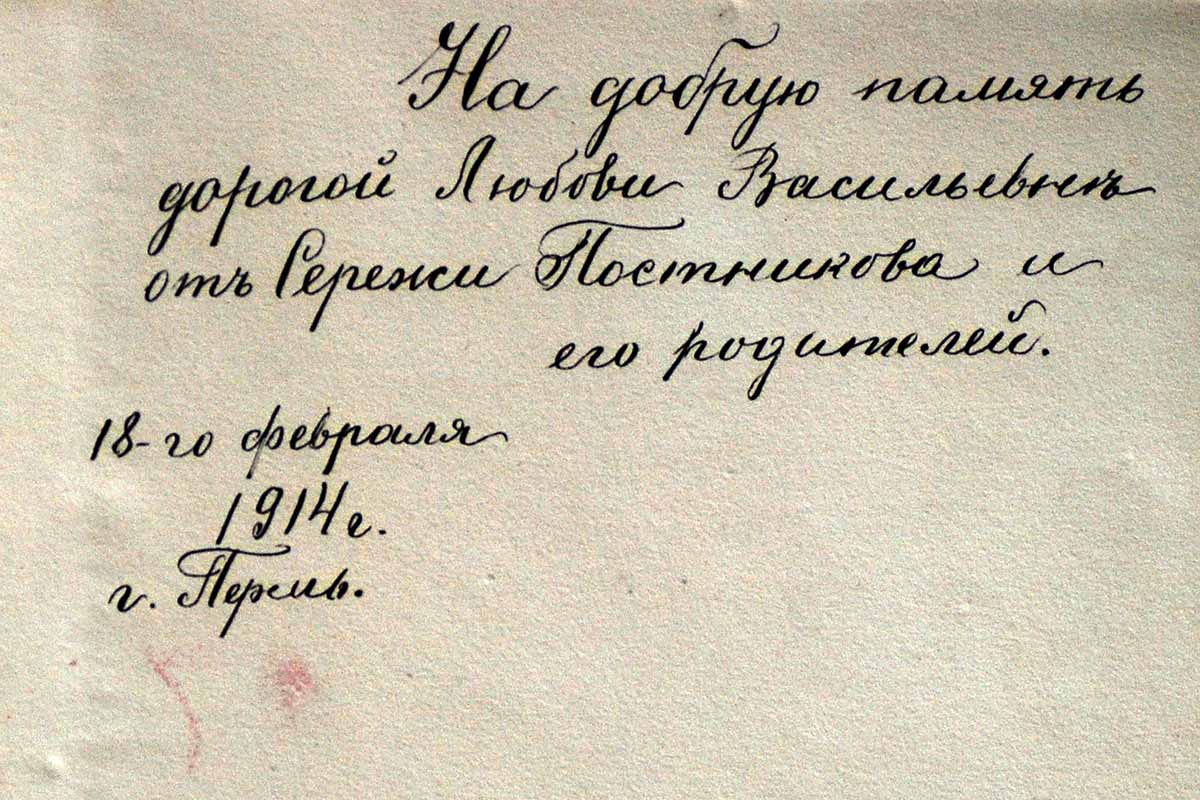 На добрую память
дорогой Любови Васильевнѣ
отъ Сережи Постникова и
его родителей.
18-го февраля
1914 г.
г. Пермь.